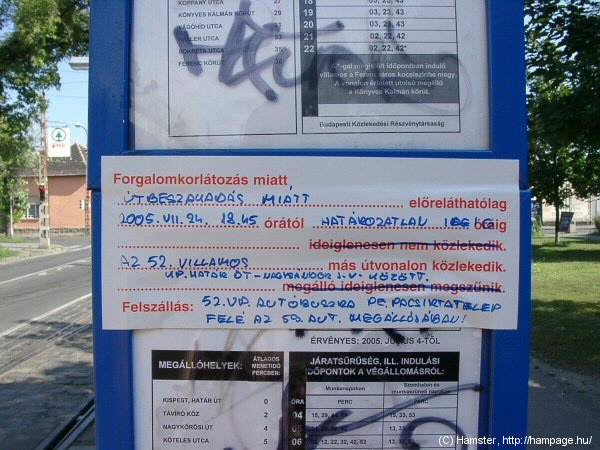 KOPPÁNY UTCA 27
KÖNYVES KÁLMÁN KÖRÚT 29
VÁGÓHÍD UTCA
HALLER UTCA
BOKRÉTA UTCA 35
FERENC KÖRÚT 36
19 03, 23, 43
20 03, 23, 43
21 02, 22, 42
22 02, 22, 42*
A *-gal megjelölt időpontban induló
villamos a Ferencváros kocsiszínbe megy.
A vonalon érintett utolsó megálló
a Könyves Kálmán körút.
Budapesti Közlekedési Részvénytársaság
SPAR
Forgalomkorlátozás miatt
ÚTBESZAKADÁS MIATT előreláthatólag
2005. VII. 24. 18.45 órától HATÁROZATLAN IDEIG óráig
ideiglenesen nem közlekedik.
AZ 52. VILLAMOS más útvonalon közlekedik.
VP. HATÁR ÚT - NAGYSÁNDOR J. U. KÖZÖTT.
megálló ideiglenesen megszűnik.
Felszállás: 52. VP. AUTÓBUSZRA PE. PACSIRTATELEP
FELÉ AZ 59. AUT. MEGÁLLÓJÁBAN!
ÉRVÉNYES: 2005. JÚNIUS 4-TŐL
MEGÁLLÓHELYEK: ÁTLAGOS
MENETIDŐ
PERCBEN:
JÁRATSŰRŰSÉG, ILL. INDULÁSI
IDŐPONTOK A VÉGÁLLOMÁSRÓL:
Munkanapokon
Szombaton és
munkaszüneti napokon
ÓRA PERC PERC
KISPEST, HATÁR ÚT 0
TÁVÍRÓ KÖZ 2
NAGYKŐRÖSI ÚT 4
KÖTELES UTCA 5
04 15, 29, 15, 33, 53
05 13, 33, 53
06 02, 12, 22, 32, 42, 52 13, 33, 53
(C) Hamster, http://hampage.hu/